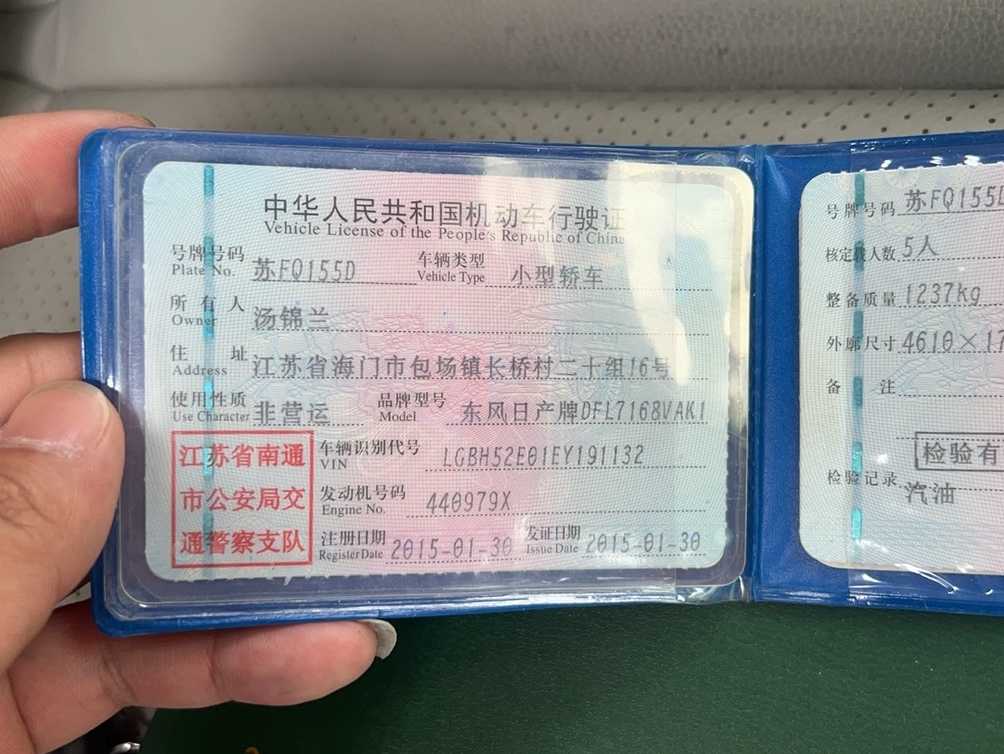 中华人民共和国机动车行驶证
Vehicle License of the People's Republic of China
号牌号码 苏FQ155D 车辆类型 小型轿车
Plate No. Vehicle Type
所有人 汤锦兰
Owner
住址 江苏省海门市包场镇长桥村二十组16号
Address
使用性质 非营运 品牌型号 东风日产牌DFL7168VAK1
Use Character Model
江苏省南通
市公安局交
通警察支队
车辆识别代号 LGBH52E01EY191132
VIN
发动机号码 440979X
Engine No.
注册日期 2015-01-30 发证日期 2015-01-30
Register Date Issue Date
号牌号码 苏FQ155
核定载人数 5人
整备质量 1237kg
外廓尺寸 4610×17
备注
检验有
检验记录
汽油